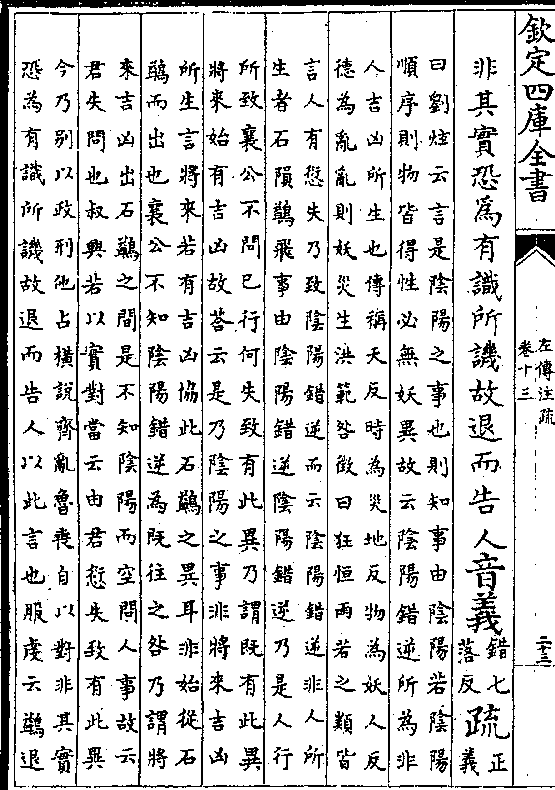 欽定四庫全書
左傳注疏
卷十三
二十三
非其實恐爲有識所譏故退而告人音義錯七落反疏正義
曰劉炫云言是陰陽之事也則知事由陰陽若陰陽
順序則物皆得性必無妖異故云陰陽錯逆所為非
人吉凶所生也傳稱天反時為災地反物為妖人反
德為亂亂則妖災生洪範咎徵曰狂恒雨若之類皆
言人有愆失乃致陰陽錯逆而云陰陽錯逆非人所
生者石隕鷁飛事由陰陽錯逆陰陽錯逆乃是人行
所致襄公不問已行何失致有此異乃謂既有此異
將來始有吉凶故荅云是乃陰陽之事非將來吉凶
所生言將來若有吉凶協此石鷁之異耳非始從石
鷁而出也襄公不知陰陽錯逆為既往之咎乃謂將
來吉凶出石鷁之間是不知陰陽而空問人事故云
君失問也叔興若以實對當云由君愆失致有此異
今乃别以政刑他占橫說齊亂魯喪自以對非其實
恐為有識所譏故退而告人以此言也服虔云鷁退